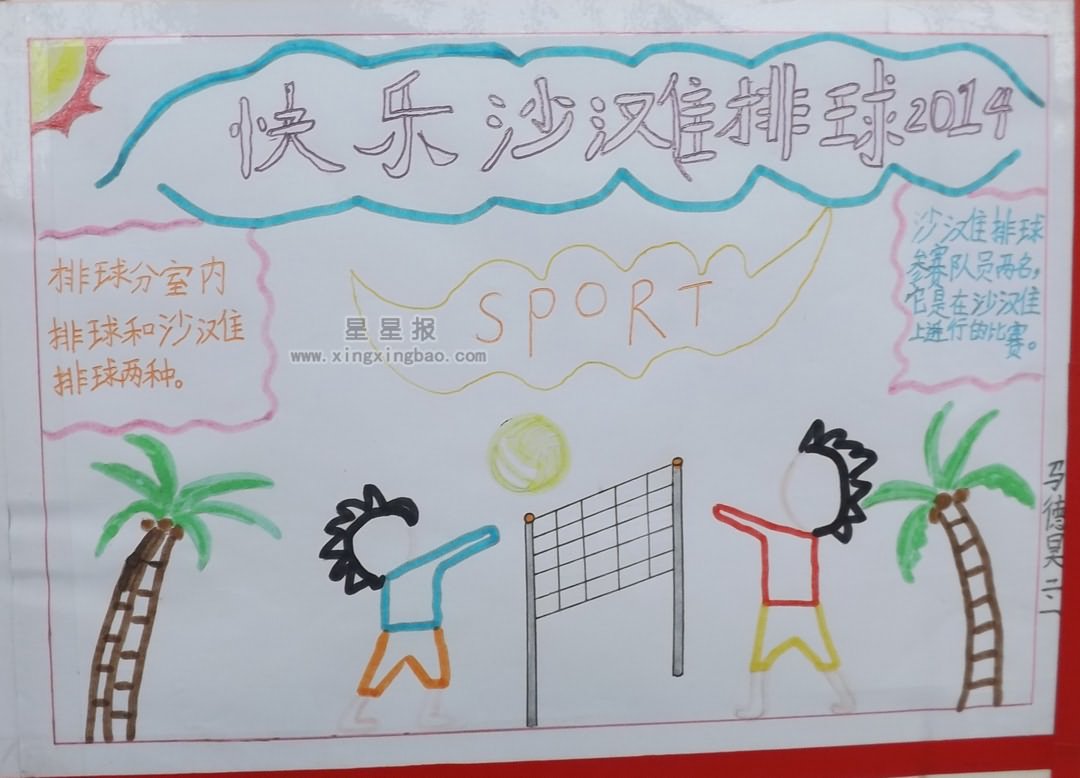 快乐沙汉隹排球2014
SPORT
排球分室内
排球和沙汉隹
排球两种。
沙汉隹排球
参赛队员两名,
它是在沙汉隹
上进行的比
赛。
星星报
www.xingxingbao.com
马德昊 二·一